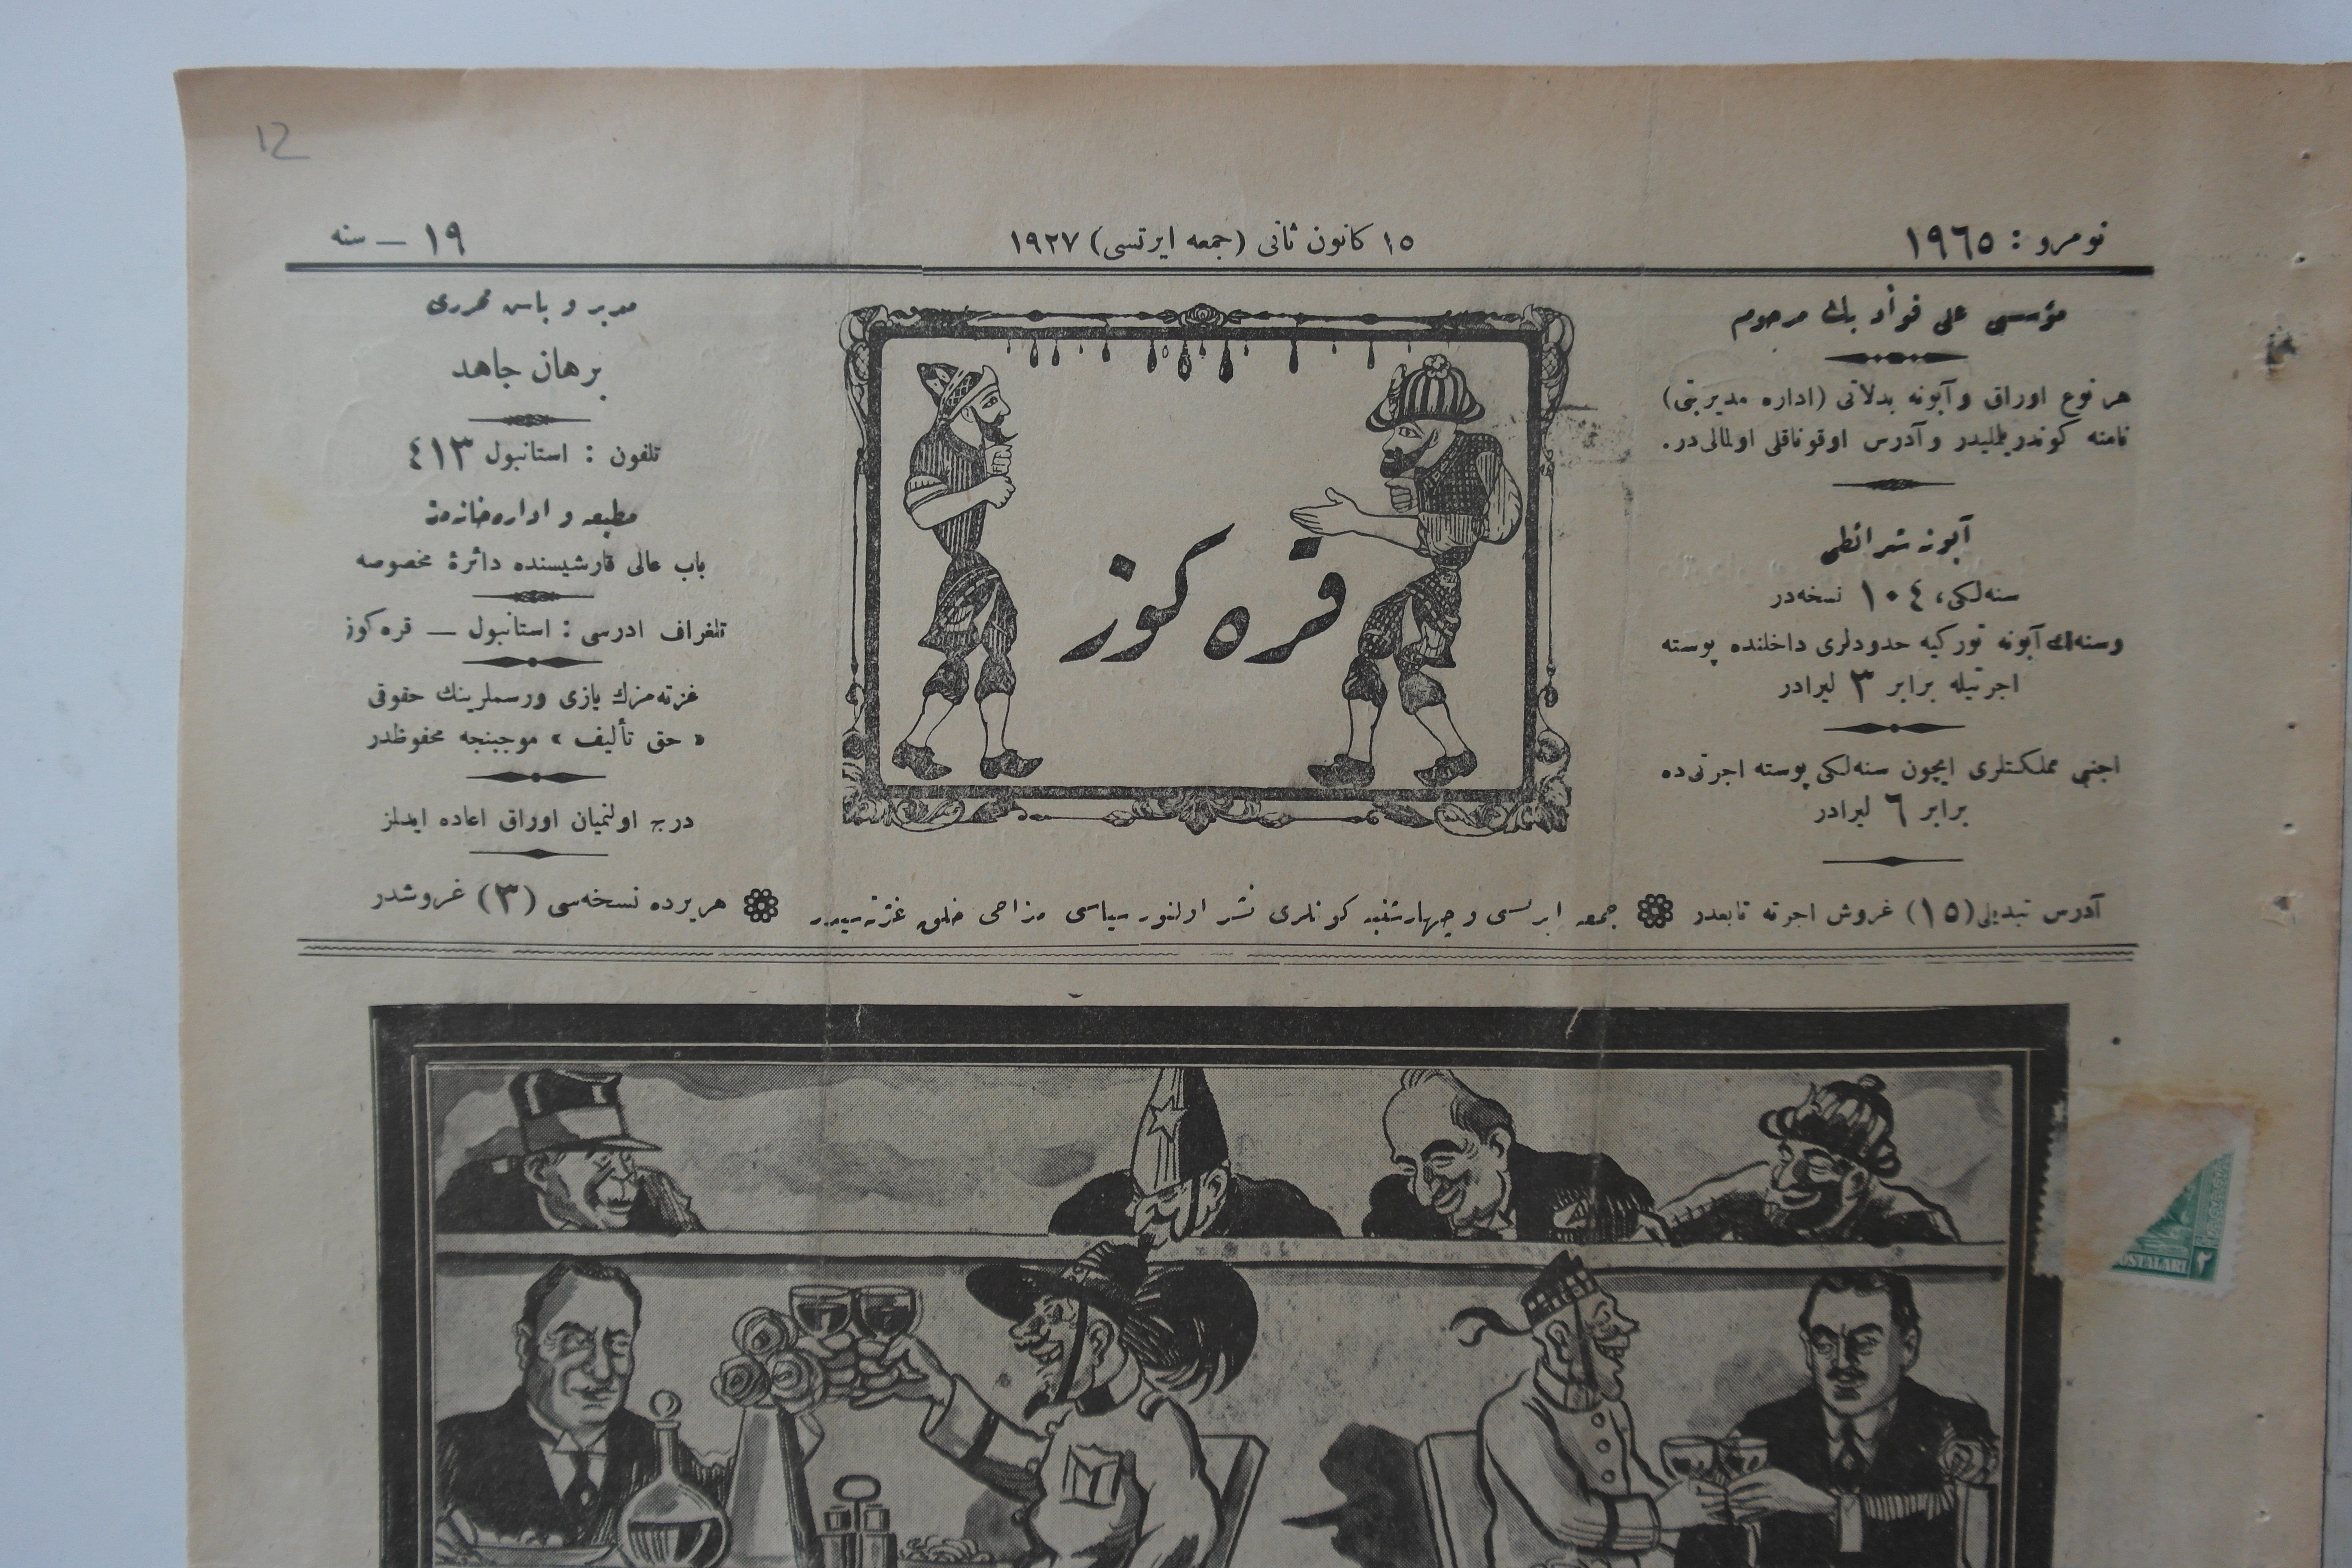 12
نومرو : ١٩٦٥
١٥ كانون ثانى (جمعه ايرتسى) ١٩٢٧
١٩ — سنه
مؤسسى على فؤاد بك مرحوم
هر نوع اوراق و آبونه بدلاتى (اداره مديريتى)
نامنه كوندريلمليدر و آدرس اوقوناقلى اولمالى در.
آبونه شرائطى
سنه لكى، ١٠٤ نسخه در
وسنه لك آبونه توركيه حدودلرى داخلنده پوسته
اجرتيله برابر ٣ ليرادر
اجنبى مملكتلرى ايچون سنه لكى پوسته اجرتى ده
برابر ٦ ليرادر
قره كوز
مدير و باش محررى
برهان جاهد
تلفون : استانبول ٤١٣
مطبعه و اداره خانه مز
باب عالى قارشيسنده دائرۀ مخصوصه
تلغراف ادرسى : استانبول — قره كوز
غزته مزك يازى ورسملرينك حقوقى
« حق تأليف » موجبنجه محفوظدر
درج اولنميان اوراق اعاده ايدلز
آدرس تبديلى (١٥) غروش اجرته تابعدر
جمعه ايرتسى و چهارشنبه كونلرى نشر اولنور سياسى مزاحى خلق غزته سيدر
هريرده نسخه سى (٣) غروشدر
POSTALARI ٢
M